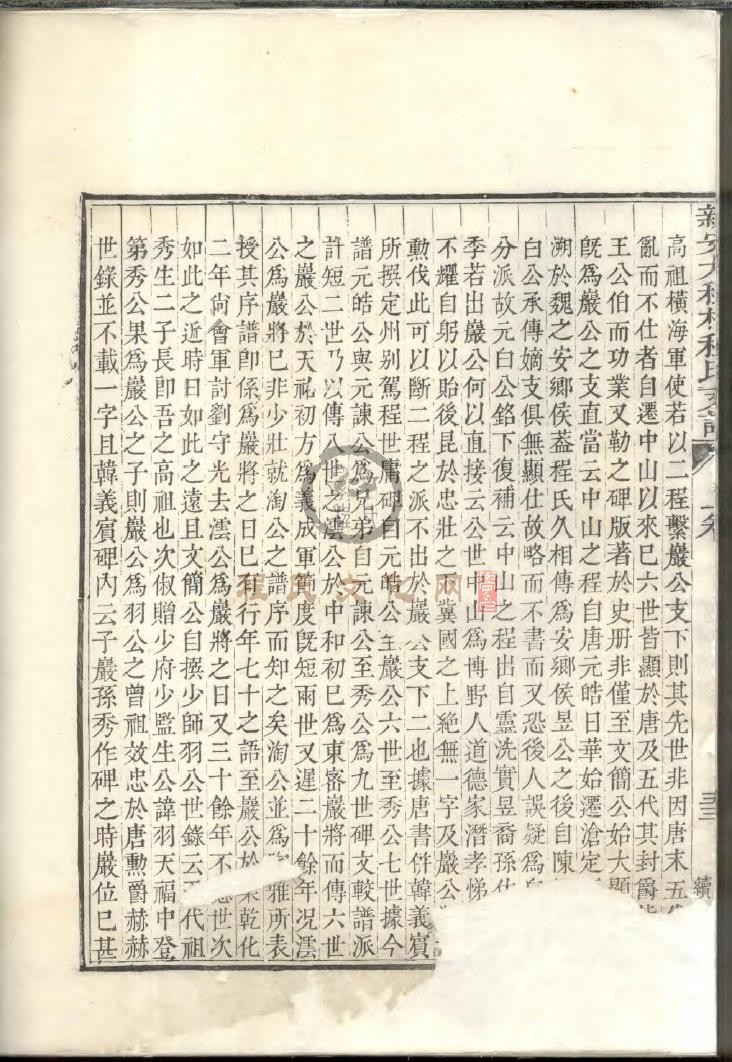 高祖橫海軍使若以二程繫巖公支下則其先世非因唐末五
亂而不仕者自遷中山以來巳六世皆顯於唐及五代其封爵
王公伯而功業又勒之碑版著於史册非僅至文簡公始大顯
旣爲巖公之支直當云中山之程自唐元皓日華始遷滄定
溯於魏之安鄉侯葢程氏久相傳爲安鄉侯昱公之後自陳
白公承傳嫡支俱無顯仕故略而不書而又恐後人誤疑爲
分派故元白公銘下復補云中山之程出自靈洗實昱裔孫仕
季若出巖公何以直接云公世中山爲博野人道德家潛孝悌
不耀自躬以貽後昆於忠壯之下冀國之上絶無一字及巖公
勲伐此可以斷二程之派不出於巖公支下二也據唐書併韓義賓
所撰定州别駕程世庸碑曰元皓公至巖公六世至秀公七世據今
譜元皓公與元諫公爲兄弟自元諫公至秀公爲九世碑文較譜派
計短二世乃以傳八世之澐公於中和初巳爲東密巖將而傳六世
之巖公於天祐初方爲義成軍節度旣短兩世又遲二十餘年况澐
公爲巖將巳非少壯就淘公之譜序而知之矣淘公並爲雅所表
授其序譜卽係爲巖將之日巳有行年七十之語至巖公於乾化
二年尙會軍討劉守光去澐公爲巖將之日又三十餘年不應世次
如此之近時日如此之遠且文簡公自撰少師羽公世錄云代祖
秀生二子長卽吾之高祖也次俶贈少府少監生公諱羽天福中登
第秀公果爲巖公之子則巖公爲羽公之曾祖效忠於唐勲爵赫赫
世錄並不載一字且韓義賓碑內云子巖孫秀作碑之時巖位巳甚
程氏文化网